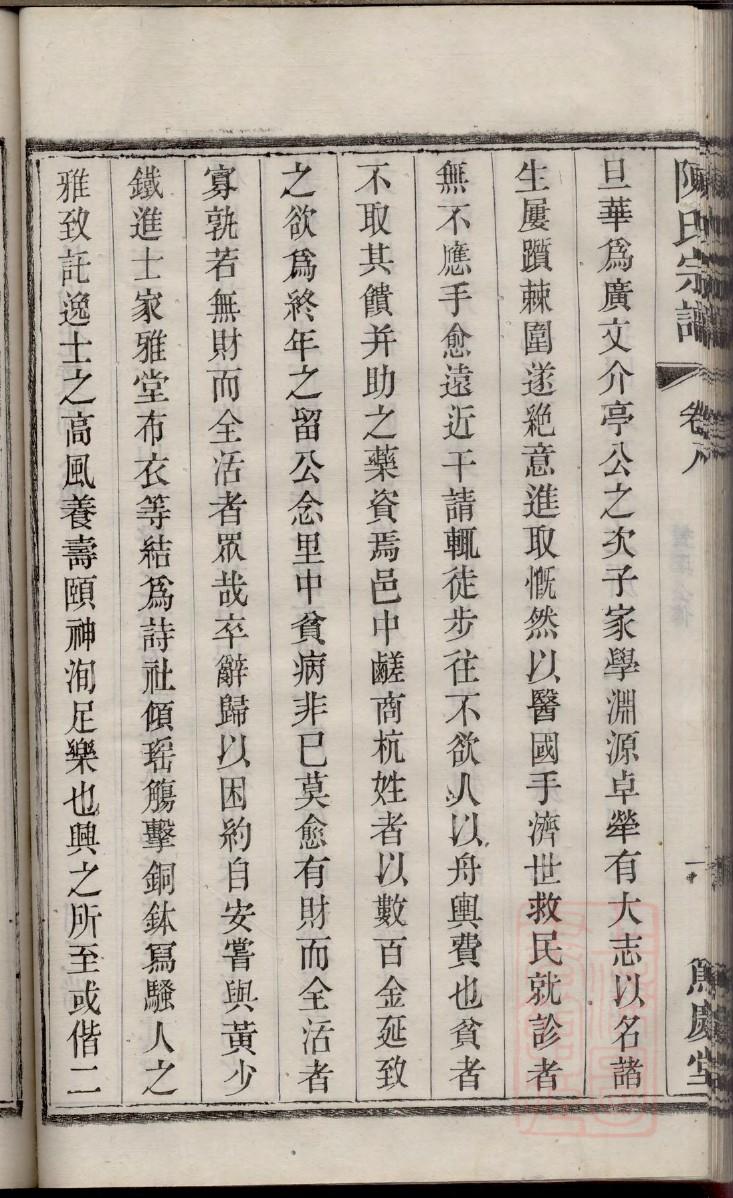 陳氏宗譜 卷八 一 篤慶堂
旦華爲廣文介亭公之次子家學淵源卓犖有大志以名諸
生屢躓棘圍遂絕意進取慨然以醫國手濟世救民就診者
無不應手愈遠近干請輒徒步往不欲人以舟輿費也貧者
不取其饋并助之藥資焉邑中鹺商杭姓者以數百金延致
之欲爲終年之留公念里中貧病非已莫愈有財而全活者
寡孰若無財而全活者眾哉卒辭歸以困約自安嘗與黃少
鐵進士家雅堂布衣等結爲詩社傾瑶觴擊銅鉢寫騷人之
雅致託逸士之高風養壽頤神洵足樂也興之所至或偕二